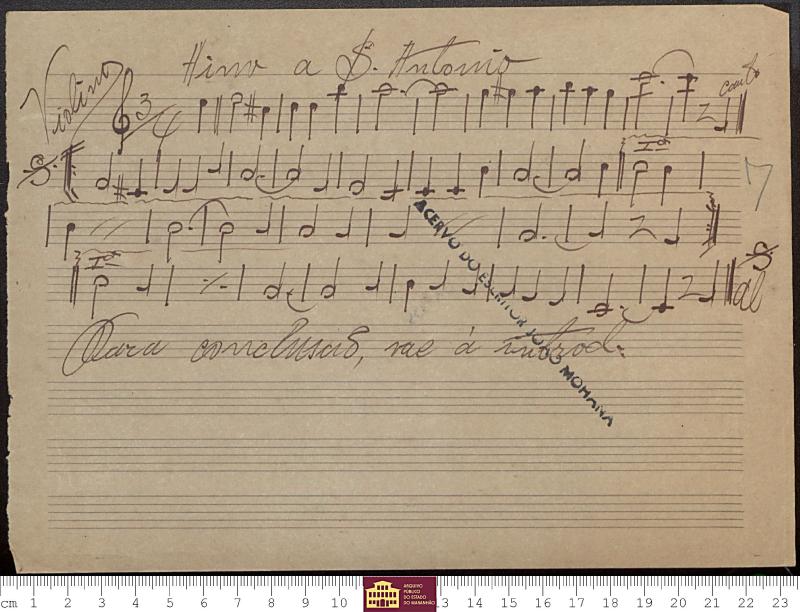 Hino a S. Antonio
Violino
3/4
Canto
1ª
7
1ª
al
Para conclusão, vae á introd.
ACERVO DO ESCRITOR JOÃO MOHANA
cm 1 2 3 4 5 6 7 8 9 10 13 14 15 16 17 18 19 20 21 22 23
ARQUIVO
PÚBLICO
DO ESTADO
DO MARANHÃO